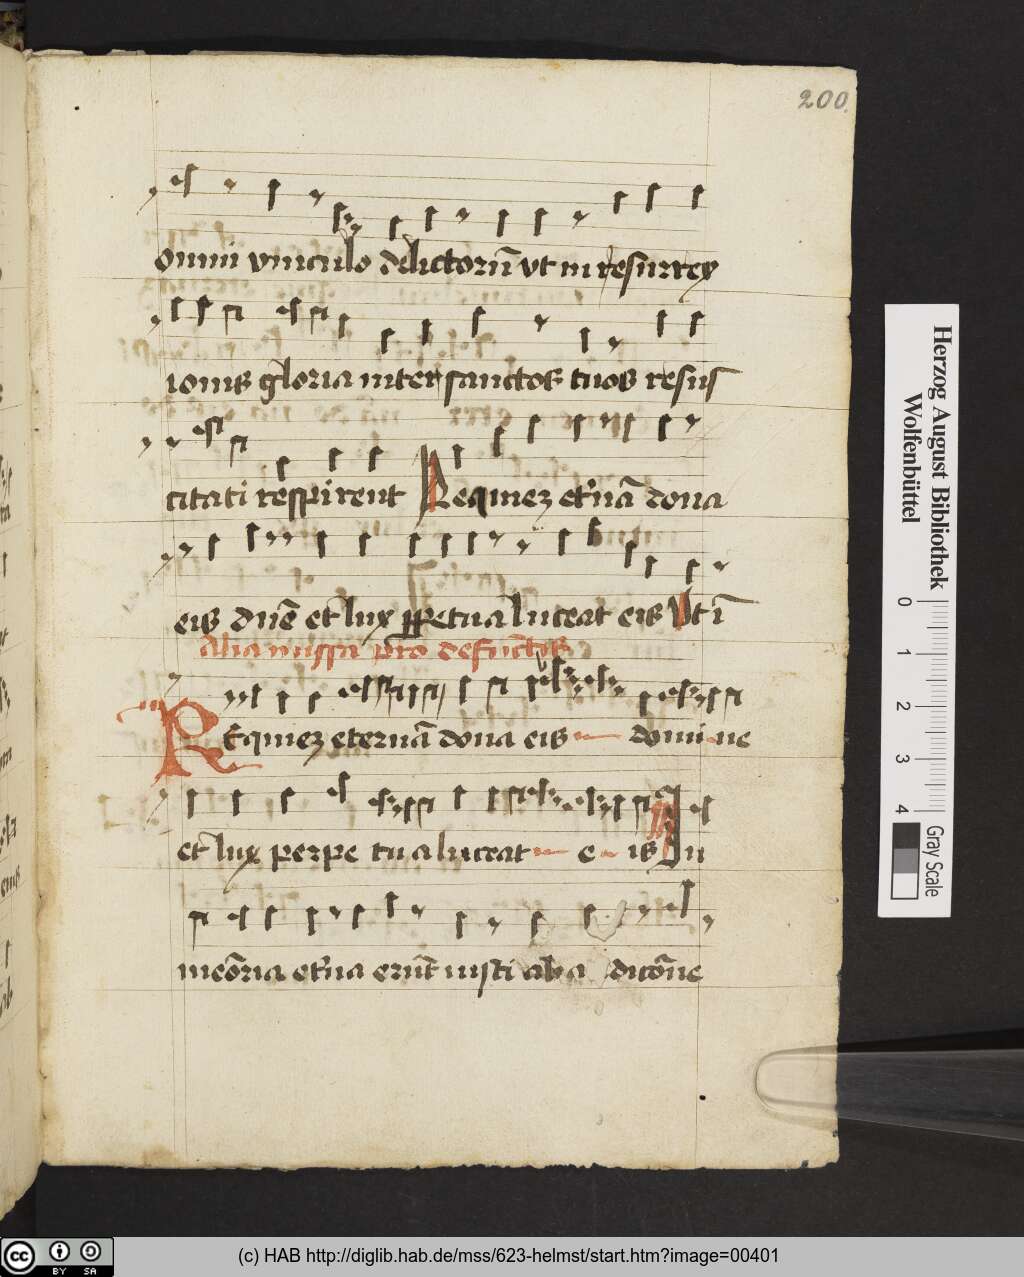 200.
omni vinculo delictorū vt in resurrex
ionis gloria inter sanctos tuos resus
citati respirent Requiez et̄nā dona
eis dn̄e et lux ꝑpetua luceat eis Vt ī
Alia missa pro defūctis
REquiez eternā dona eis domi ne
et lux perpe tua luceat e is In
meōria et̄na erūt iusti ab a ditōne
Herzog August Bibliothek
Wolfenbüttel
0 1 2 3 4
Gray Scale
cc BY SA
(c) HAB http://diglib.hab.de/mss/623-helmst/start.htm?image=00401